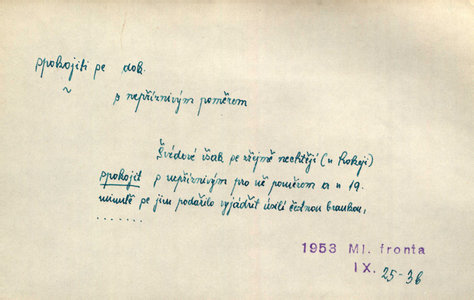 spokojiti se dok.
~
s nepříznivým poměrem
Švédové však se zřejmě nechtějí (v hokeji)
spokojit s nepříznivým pro ně poměrem a v 19.
minutě se jim podařilo vyjádřit úsilí čestnou brankou,
.......
1953 Ml. fronta
IX. 25-36